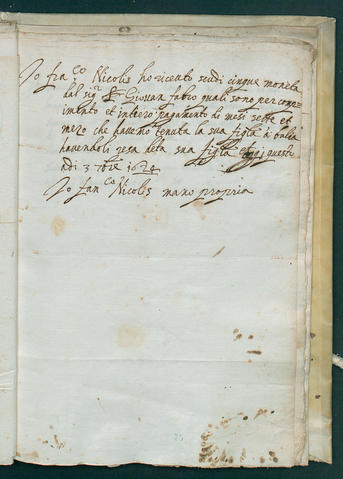 Io fra.co Nicolis ho riceuto scudi cinque moneta
dal sigr Giouan fabro quali sono per com
pimento et intiero pagamento di mesi sette et
mezo che hauemo tenuta la sua figlia à balia
hauendoli resa deta sua figlia questo
adi 3 7bre 1624
Io fran.co Nicolis mano propria